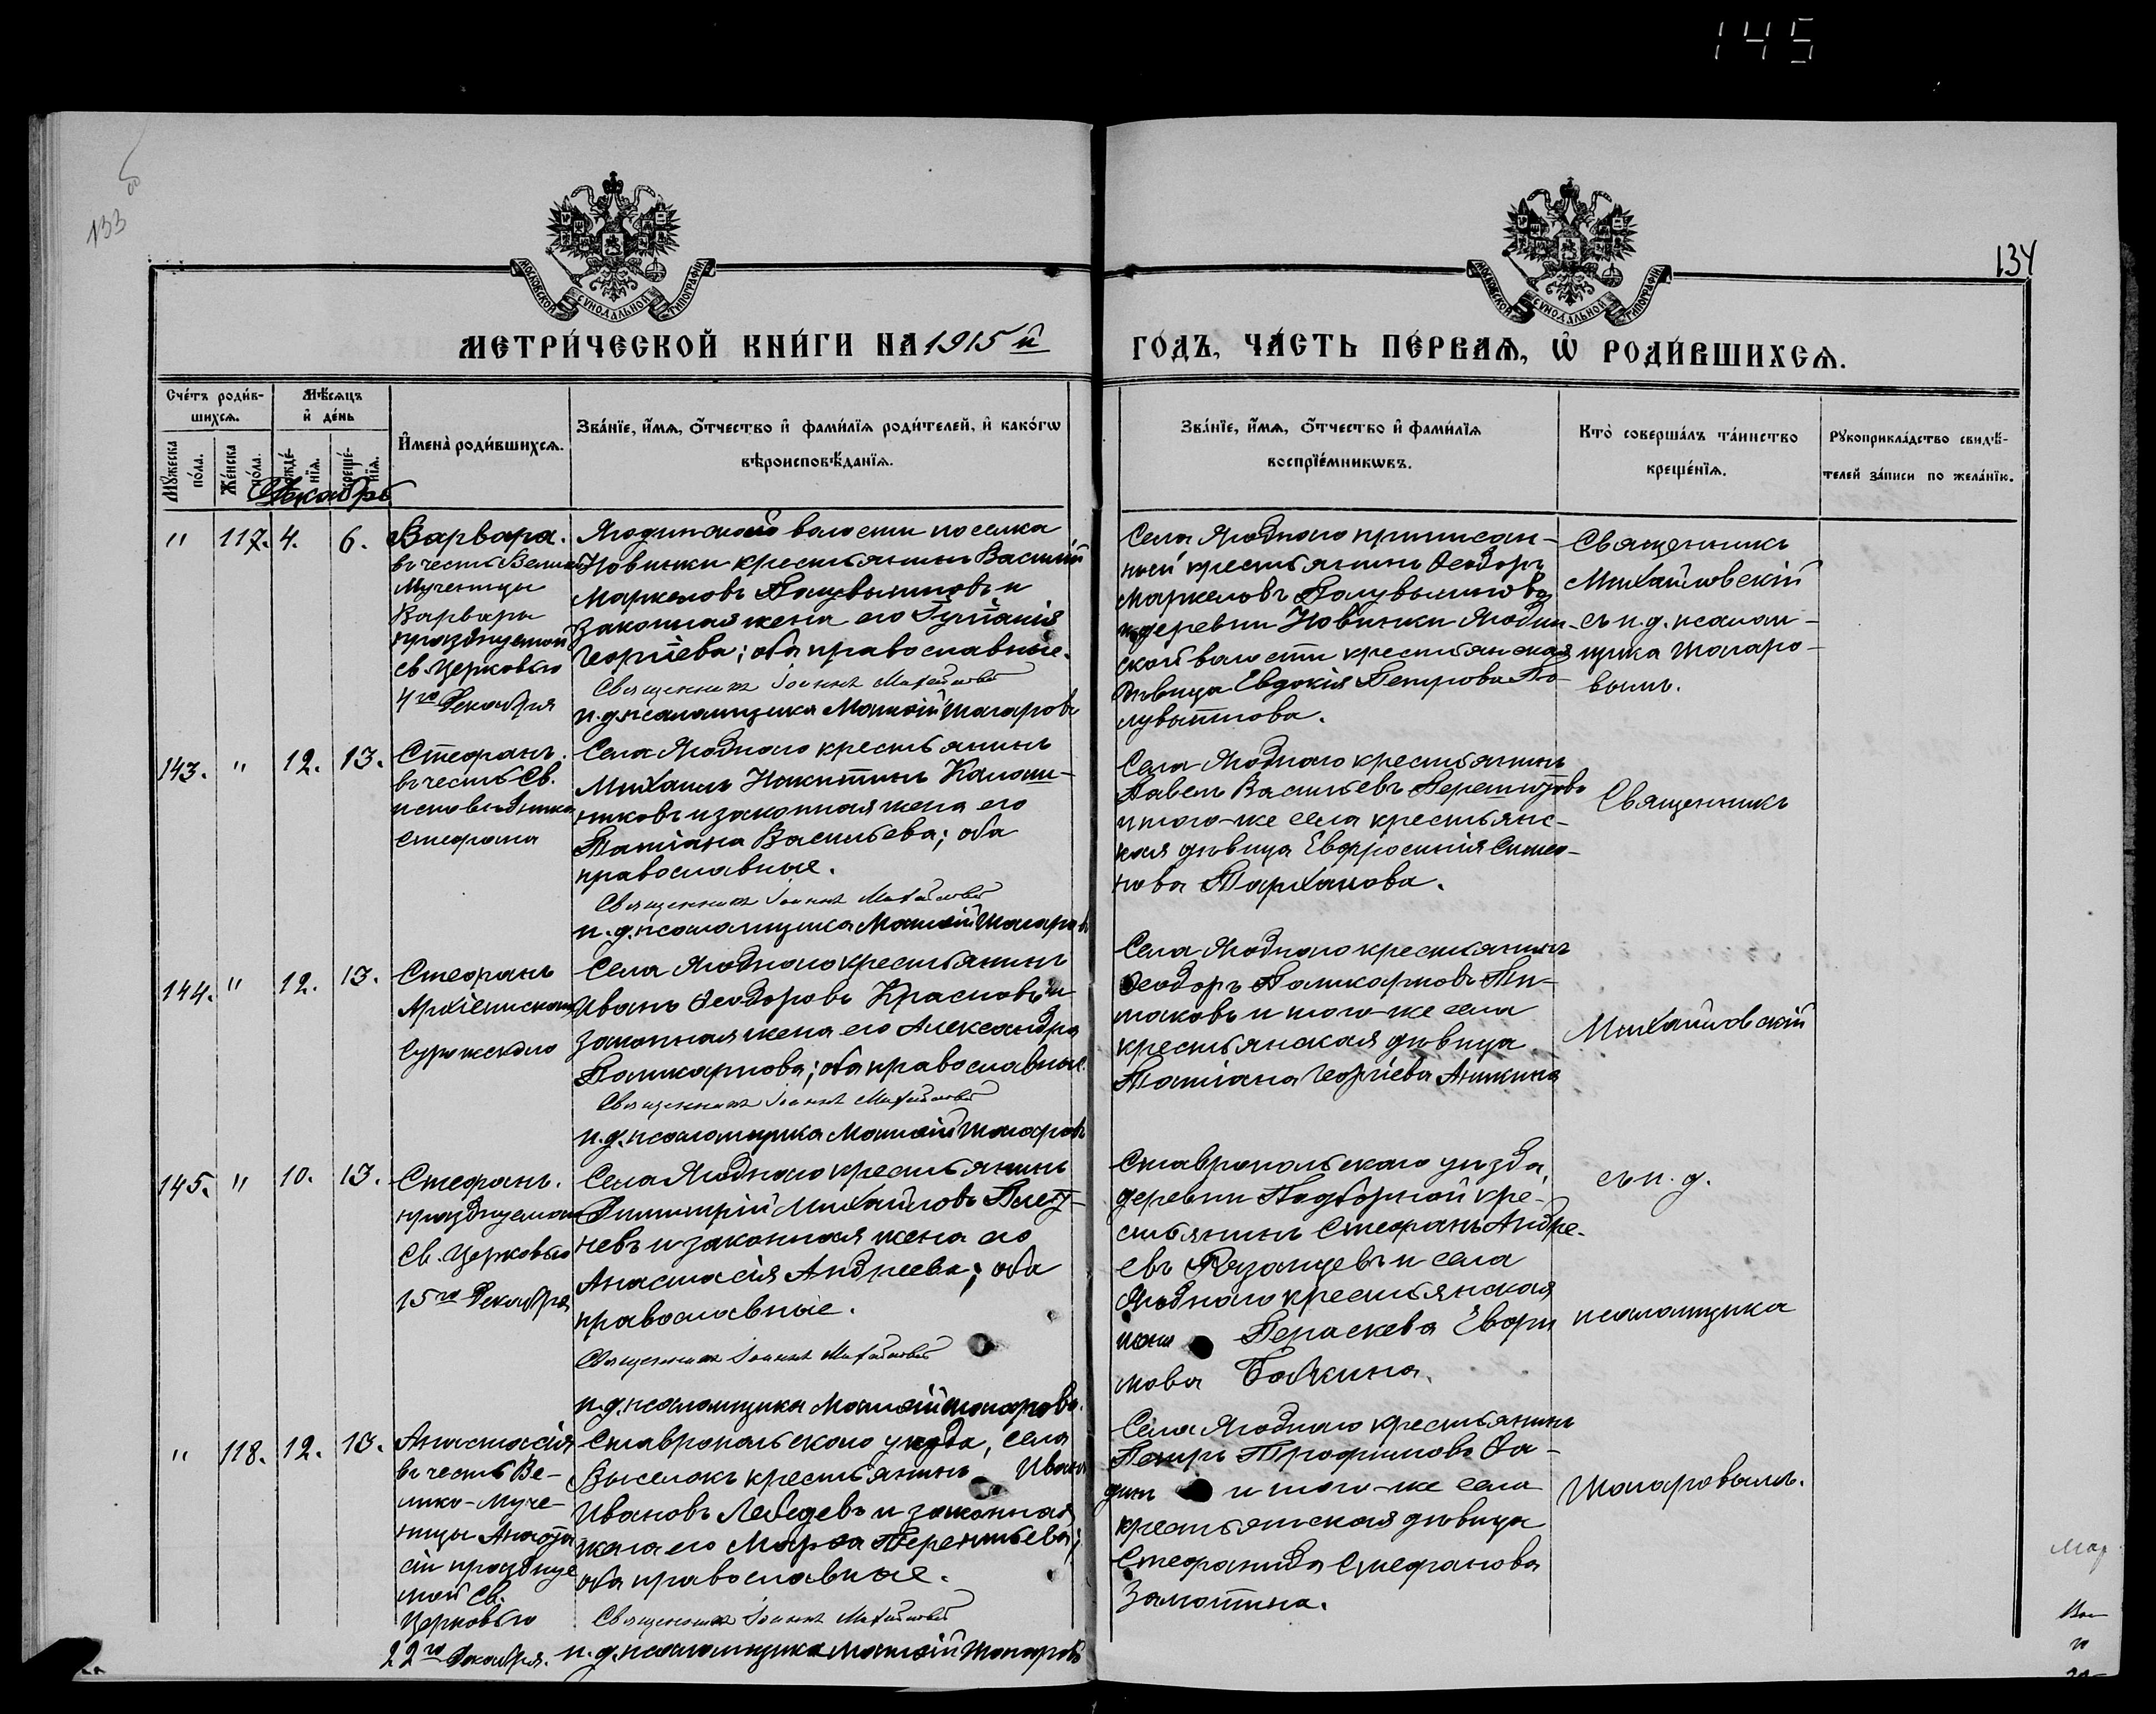 145
133
134
МОСКОВСКОЙ СУНОДАЛЬНОЙ ТИПОГРАФІИ
МОСКОВСКОЙ СУНОДАЛЬНОЙ ТИПОГРАФІИ
МЕТРИ́ЧЕСКОЙ КНИ́ГИ НА 1915 й
ГО́ДЪ, ЧА́СТЬ ПЕ́РВАѦ, Ѡ҆ РОДИ́ВШИХСѦ.
Сче́тъ роди́в-
шихсѧ.
Мꙋжеска по́ла.
Же́нска по́ла.
Мѣ́сяцъ
и҆ де́нь
рожде́-
нїѧ.
креще́-
нїѧ.
И҆мена̀ роди́вшихсѧ.
Зва́нїе, и҆́мѧ, ѻ҆́тчество и҆ фами́лїѧ роди́телей, и҆ како́гѡ
вѣроисповѣ́данїѧ.
Зва́нїе, и҆́мѧ, ѻ҆́тчество и҆ фами́лїѧ
воспрїе́мникѡвъ.
Кто̀ соверша́лъ та́инство
креще́нїѧ.
Рꙋкоприкла́дство свидѣ́-
телей за́писи по жела́нїю.
Декабрь
" 117. 4. 6.
Варвара.
въ честь Велико
Мученицы
Варвары
празднуемой
св. Церковью
4го Декабря
Ягодинской волости поселка
Новинки крестьянинъ Василій
Маркеловъ Полувытновъ и
законная жена его
Георгіева; оба православные.
Священникъ Іоаннъ Михайловскій
и.д. псаломщика Шапаровъ
Села Ягоднаго приписан-
ный крестьянинъ Ѳеодоръ
Маркеловъ
и деревни Новинки Ягодин-
ской волости крестьянская
дѣвица Евдокія Петрова По-
лувытнова.
Священникъ
Михайловскій
съ и. д. псалом-
щика Шапаро-
вымъ.
143. " 12. 13.
Стефанъ.
въ честь Св.
исповѣдника
Стефана
Села Ягоднаго крестьянинъ
Михаилъ Никитинъ Калаш-
никовъ и законная жена его
Татіана Васильева; оба
православные.
Священникъ Іоаннъ Михайловскій
и. д. псаломщика Шапаровъ
Села Ягоднаго крестьянинъ
Павелъ Васильевъ
и того-же села крестьянс-
кая дѣвица Евфросинія Симео-
нова Тарханова.
Священникъ
144. " 12. 13.
Стефанъ
Архіепископъ
Сурожскаго
Села Ягоднаго крестьянинъ
Иванъ Ѳеодоровъ Красновъ и
законная жена его Александра
Поликарпова; оба православные.
Священникъ Іоаннъ Михайловскій
и.д. псаломщика Шапаровъ
Села Ягоднаго крестьянинъ
Ѳеодоръ Поликарповъ Ти-
маковъ и того-же села
крестьянская дѣвица
Татіана Георгіева Аникина
Михайловскій
145. " 10. 13.
Стефанъ.
празднуемаго
Св. Церковью
15го Декабря
Села Ягоднаго крестьянинъ
Димитрій Михайловъ Плет-
невъ и законная жена его
Анастасія Андреева; оба
православные.
Священникъ Іоаннъ Михайловскій
и.д. псаломщика Шапаровъ.
Ставропольскаго уѣзда,
деревни Подборной кре-
стьянинъ Стефанъ Андре-
евъ Казанцевъ и села
Ягоднаго крестьянская
жена Параскева
мова
съ и. д.
псаломщика
" 118. 12. 13.
Анастасія
въ честь Ве-
лико-Муче-
ницы Анаста
сіи праздную
мой Св.
Церковью
22го Декабря.
Ставропольскаго уѣзда, села
Выселокъ крестьянинъ Иванъ
Ивановъ Лебедевъ и законная
жена его Марѳа Терентьева;
оба православные.
Священникъ Іоаннъ Михайловскій
и. д. псаломщика Шапаровъ
Села Ягоднаго крестьянинъ
Петръ Трофимовъ Фа-
динъ и того-же села
крестьянская дѣвица
Стефанида Стефанова
Замотина.
Шапаровымъ.